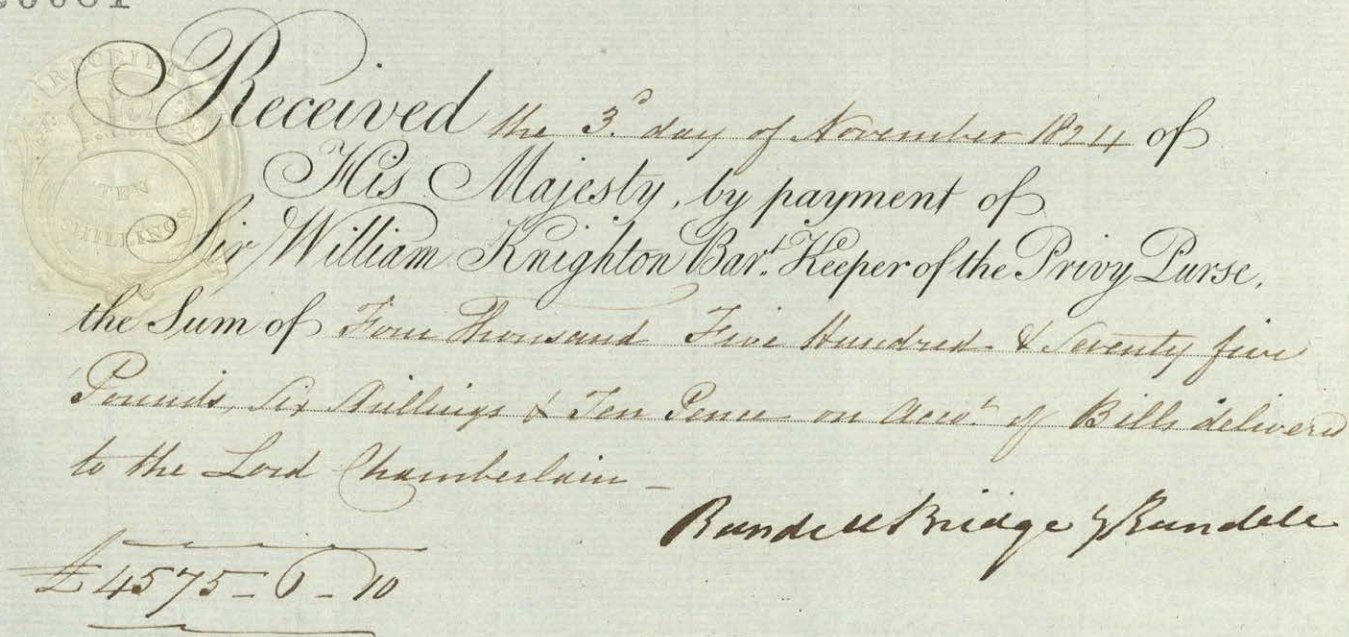 RECEIPT
TEN
SHILLINGS
Received the 3.d day of November 1824 of
His Majesty, by payment of
Sir William Knighton Bar.t Keeper of the Privy Purse,
the Sum of Four Thousand Five Hundred & Seventy five
Pounds, Six Shillings & Ten Pence on Acco.t of Bills delivered
to the Lord Chamberlain —
Rundell Bridge & Rundell
£4575 - 6 - 10